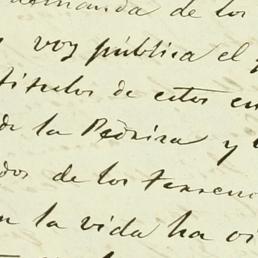 demanda de los
voz pública el
titulos de estos en
de la Pedriza y
dos de los terreno
en la vida ha oi